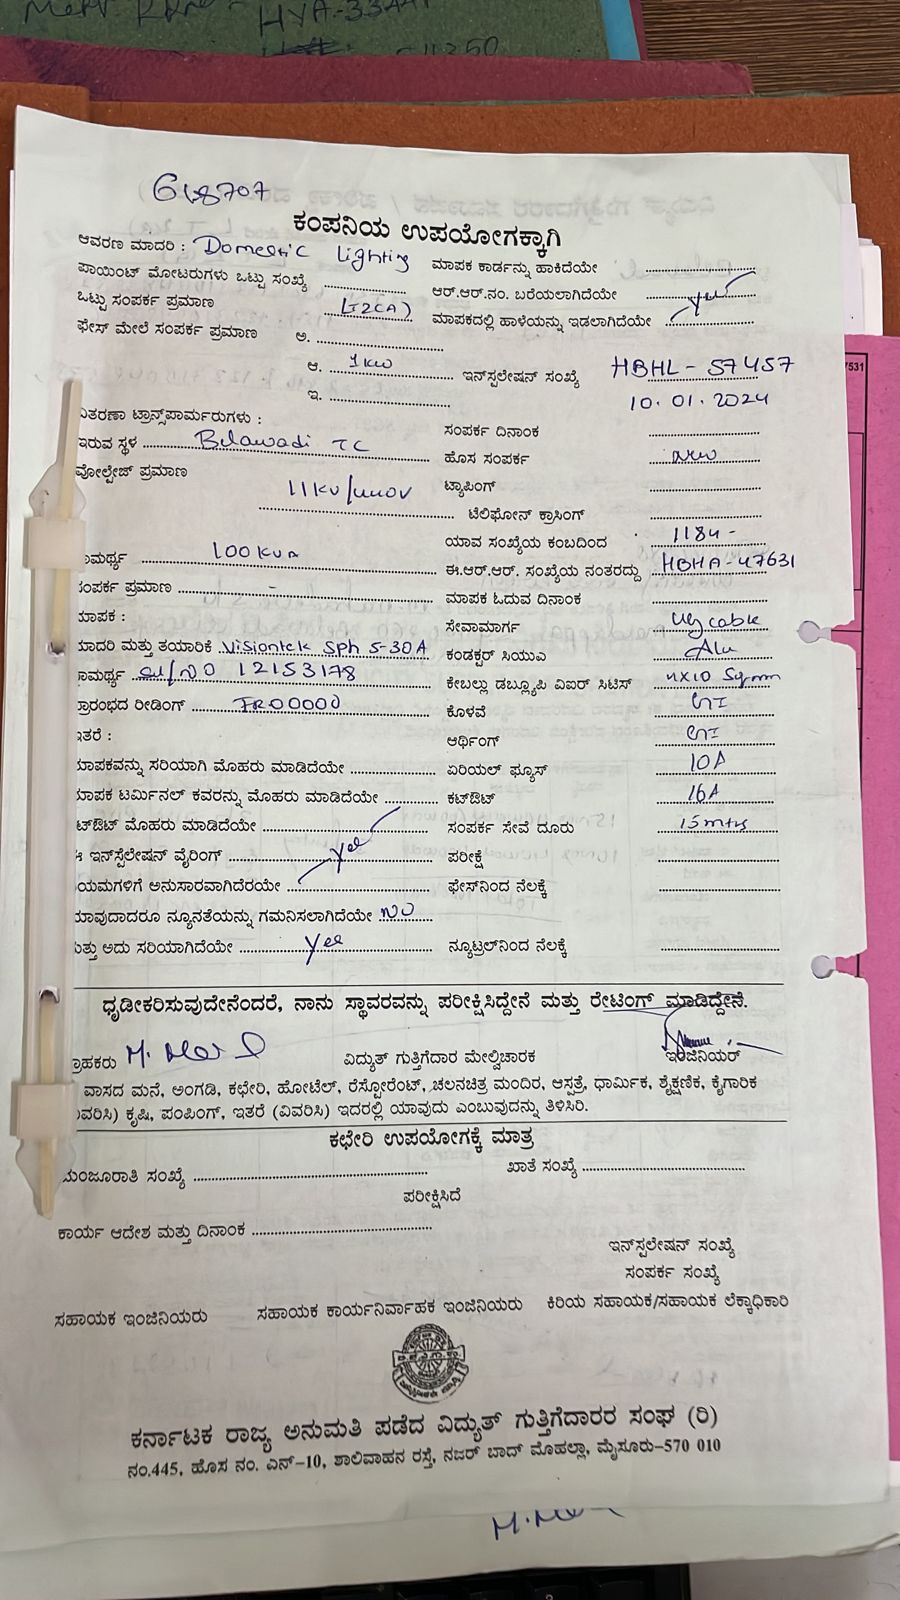 HYA-33
648707
ಕಂಪನಿಯ ಉಪಯೋಗಕ್ಕಾಗಿ
ಆವರಣ ಮಾದರಿ : Domestic Lighting
ಮಾಪಕ ಕಾರ್ಡನ್ನು ಹಾಕಿದೆಯೇ
ಪಾಯಿಂಟ್ ಮೋಟರುಗಳು ಒಟ್ಟು ಸಂಖ್ಯೆ
ಆರ್.ಆರ್.ನಂ. ಬರೆಯಲಾಗಿದೆಯೇ yes
ಒಟ್ಟು ಸಂಪರ್ಕ ಪ್ರಮಾಣ LT2(A)
ಮಾಪಕದಲ್ಲಿ ಹಾಳೆಯನ್ನು ಇಡಲಾಗಿದೆಯೇ
ಫೇಸ್ ಮೇಲೆ ಸಂಪರ್ಕ ಪ್ರಮಾಣ ಅ.
ಆ. 1KW ಇನ್ಸ್ಟಲೇಷನ್ ಸಂಖ್ಯೆ HBHL-57457
ಇ. 10.01.2024
ವಿತರಣಾ ಟ್ರಾನ್ಸ್‌ಪಾರ್ಮರುಗಳು :
ಸಂಪರ್ಕ ದಿನಾಂಕ
ಇರುವ ಸ್ಥಳ Belawadi TC
ಹೊಸ ಸಂಪರ್ಕ new
ವೋಲ್ಟೇಜ್ ಪ್ರಮಾಣ 11KV/440V
ಟ್ಯಾಪಿಂಗ್
ಟೆಲಿಫೋನ್ ಕ್ರಾಸಿಂಗ್
ಯಾವ ಸಂಖ್ಯೆಯ ಕಂಬದಿಂದ 1184-
ಾಮರ್ಥ್ಯ 100KVA
ಈ.ಆರ್.ಆರ್. ಸಂಖ್ಯೆಯ ನಂತರದ್ದು HBHA-47631
ಸಂಪರ್ಕ ಪ್ರಮಾಣ -
ಮಾಪಕ ಓದುವ ದಿನಾಂಕ
ಮಾಪಕ :
ಸೇವಾಮಾರ್ಗ Ug cable
ಮಾದರಿ ಮತ್ತು ತಯಾರಿಕೆ Visiontek Sph 5-30A
ಕಂಡಕ್ಟರ್ ಸಿಯುಎ Alu
ಾಮರ್ಥ್ಯ Sl/NO 12153178
ಕೇಬಲ್ಲು ಡಬ್ಲ್ಯೂಪಿ ವಿಐರ್ ಸಿಟಿಸ್ 4X10 Sqmm
ಪ್ರಾರಂಭದ ರೀಡಿಂಗ್ IR00000
ಕೊಳವೆ GI
ಇತರೆ :
ಆರ್ಥಿಂಗ್ GI
ಮಾಪಕವನ್ನು ಸರಿಯಾಗಿ ಮೊಹರು ಮಾಡಿದೆಯೇ
ಏರಿಯಲ್ ಫ್ಯೂಸ್ 10A
ಮಾಪಕ ಟರ್ಮಿನಲ್ ಕವರನ್ನು ಮೊಹರು ಮಾಡಿದೆಯೇ
ಕಟ್‌ಔಟ್ 16A
ಟ್‌ಔಟ್ ಮೊಹರು ಮಾಡಿದೆಯೇ
ಸಂಪರ್ಕ ಸೇವೆ ದೂರು 15mtrs
ಈ ಇನ್ಸ್ಟೆಲೇಷನ್ ವೈರಿಂಗ್ yes
ಪರೀಕ್ಷೆ
ಯಮಗಳಿಗೆ ಅನುಸಾರವಾಗಿದೆರಯೇ
ಫೇಸ್‌ನಿಂದ ನೆಲಕ್ಕೆ
ಯಾವುದಾದರೂ ನ್ಯೂನತೆಯನ್ನು ಗಮನಿಸಲಾಗಿದೆಯೇ NO
ಮತ್ತು ಅದು ಸರಿಯಾಗಿದೆಯೇ yes
ನ್ಯೂಟ್ರಲ್‌ನಿಂದ ನೆಲಕ್ಕೆ
ಧೃಡೀಕರಿಸುವುದೇನೆಂದರೆ, ನಾನು ಸ್ಥಾವರವನ್ನು ಪರೀಕ್ಷಿಸಿದ್ದೇನೆ ಮತ್ತು ರೇಟಿಂಗ್ ಮಾಡಿದ್ದೇನೆ.
ಗ್ರಾಹಕರು ವಿದ್ಯುತ್ ಗುತ್ತಿಗೆದಾರ ಮೇಲ್ವಿಚಾರಕ ಇಂಜಿನಿಯರ್
ವಾಸದ ಮನೆ, ಅಂಗಡಿ, ಕಛೇರಿ, ಹೋಟೆಲ್, ರೆಸ್ಟೋರೆಂಟ್, ಚಲನಚಿತ್ರ ಮಂದಿರ, ಆಸ್ಪತ್ರೆ, ಧಾರ್ಮಿಕ, ಶೈಕ್ಷಣಿಕ, ಕೈಗಾರಿಕ
ವರಿಸಿ) ಕೃಷಿ, ಪಂಪಿಂಗ್, ಇತರೆ (ವಿವರಿಸಿ) ಇದರಲ್ಲಿ ಯಾವುದು ಎಂಬುವುದನ್ನು ತಿಳಿಸಿರಿ.
ಕಛೇರಿ ಉಪಯೋಗಕ್ಕೆ ಮಾತ್ರ
ಮಂಜೂರಾತಿ ಸಂಖ್ಯೆ ಖಾತೆ ಸಂಖ್ಯೆ
ಪರೀಕ್ಷಿಸಿದೆ
ಕಾರ್ಯ ಆದೇಶ ಮತ್ತು ದಿನಾಂಕ
ಇನ್‌ಸ್ಟಲೇಷನ್ ಸಂಖ್ಯೆ
ಸಂಪರ್ಕ ಸಂಖ್ಯೆ
ಸಹಾಯಕ ಇಂಜಿನಿಯರು ಸಹಾಯಕ ಕಾರ್ಯನಿರ್ವಾಹಕ ಇಂಜಿನಿಯರು ಕಿರಿಯ ಸಹಾಯಕ/ಸಹಾಯಕ ಲೆಕ್ಕಾಧಿಕಾರಿ
ಕರ್ನಾಟಕ ರಾಜ್ಯ ಅನುಮತಿ ಪಡೆದ ವಿದ್ಯುತ್ ಗುತ್ತಿಗೆದಾರರ ಸಂಘ (ರಿ)
ನಂ.445, ಹೊಸ ನಂ. ಎನ್-10, ಶಾಲಿವಾಹನ ರಸ್ತೆ, ನಜರ್ ಬಾದ್ ಮೊಹಲ್ಲಾ, ಮೈಸೂರು-570 010